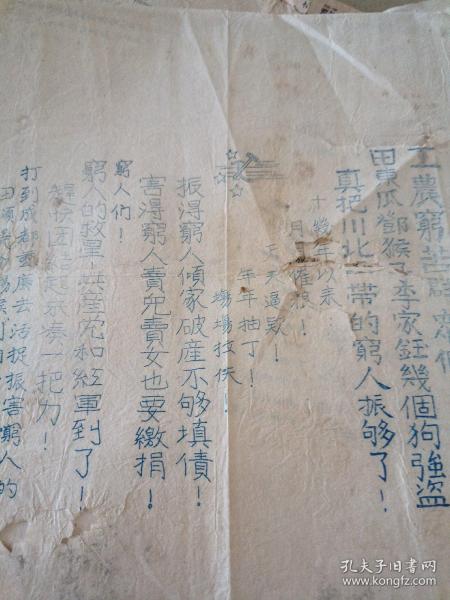 工農窮苦群眾們
田冬瓜鄧猴子李家鈺幾個狗強盜
真把川北一帶的窮人振够了！
十幾年以來：
月月催粮！
天天逼款！
年年抽丁！
塲塲拉伕！
振得窮人傾家破產不够填債！
害得窮人賣兒賣女也要繳捐！
窮人們！
窮人的救星 共產党和紅軍到了！
趕快團結起來湊一把力！
打到成都重庆去活捉振害窮人的
孔夫子旧书网
www.kongfz.com